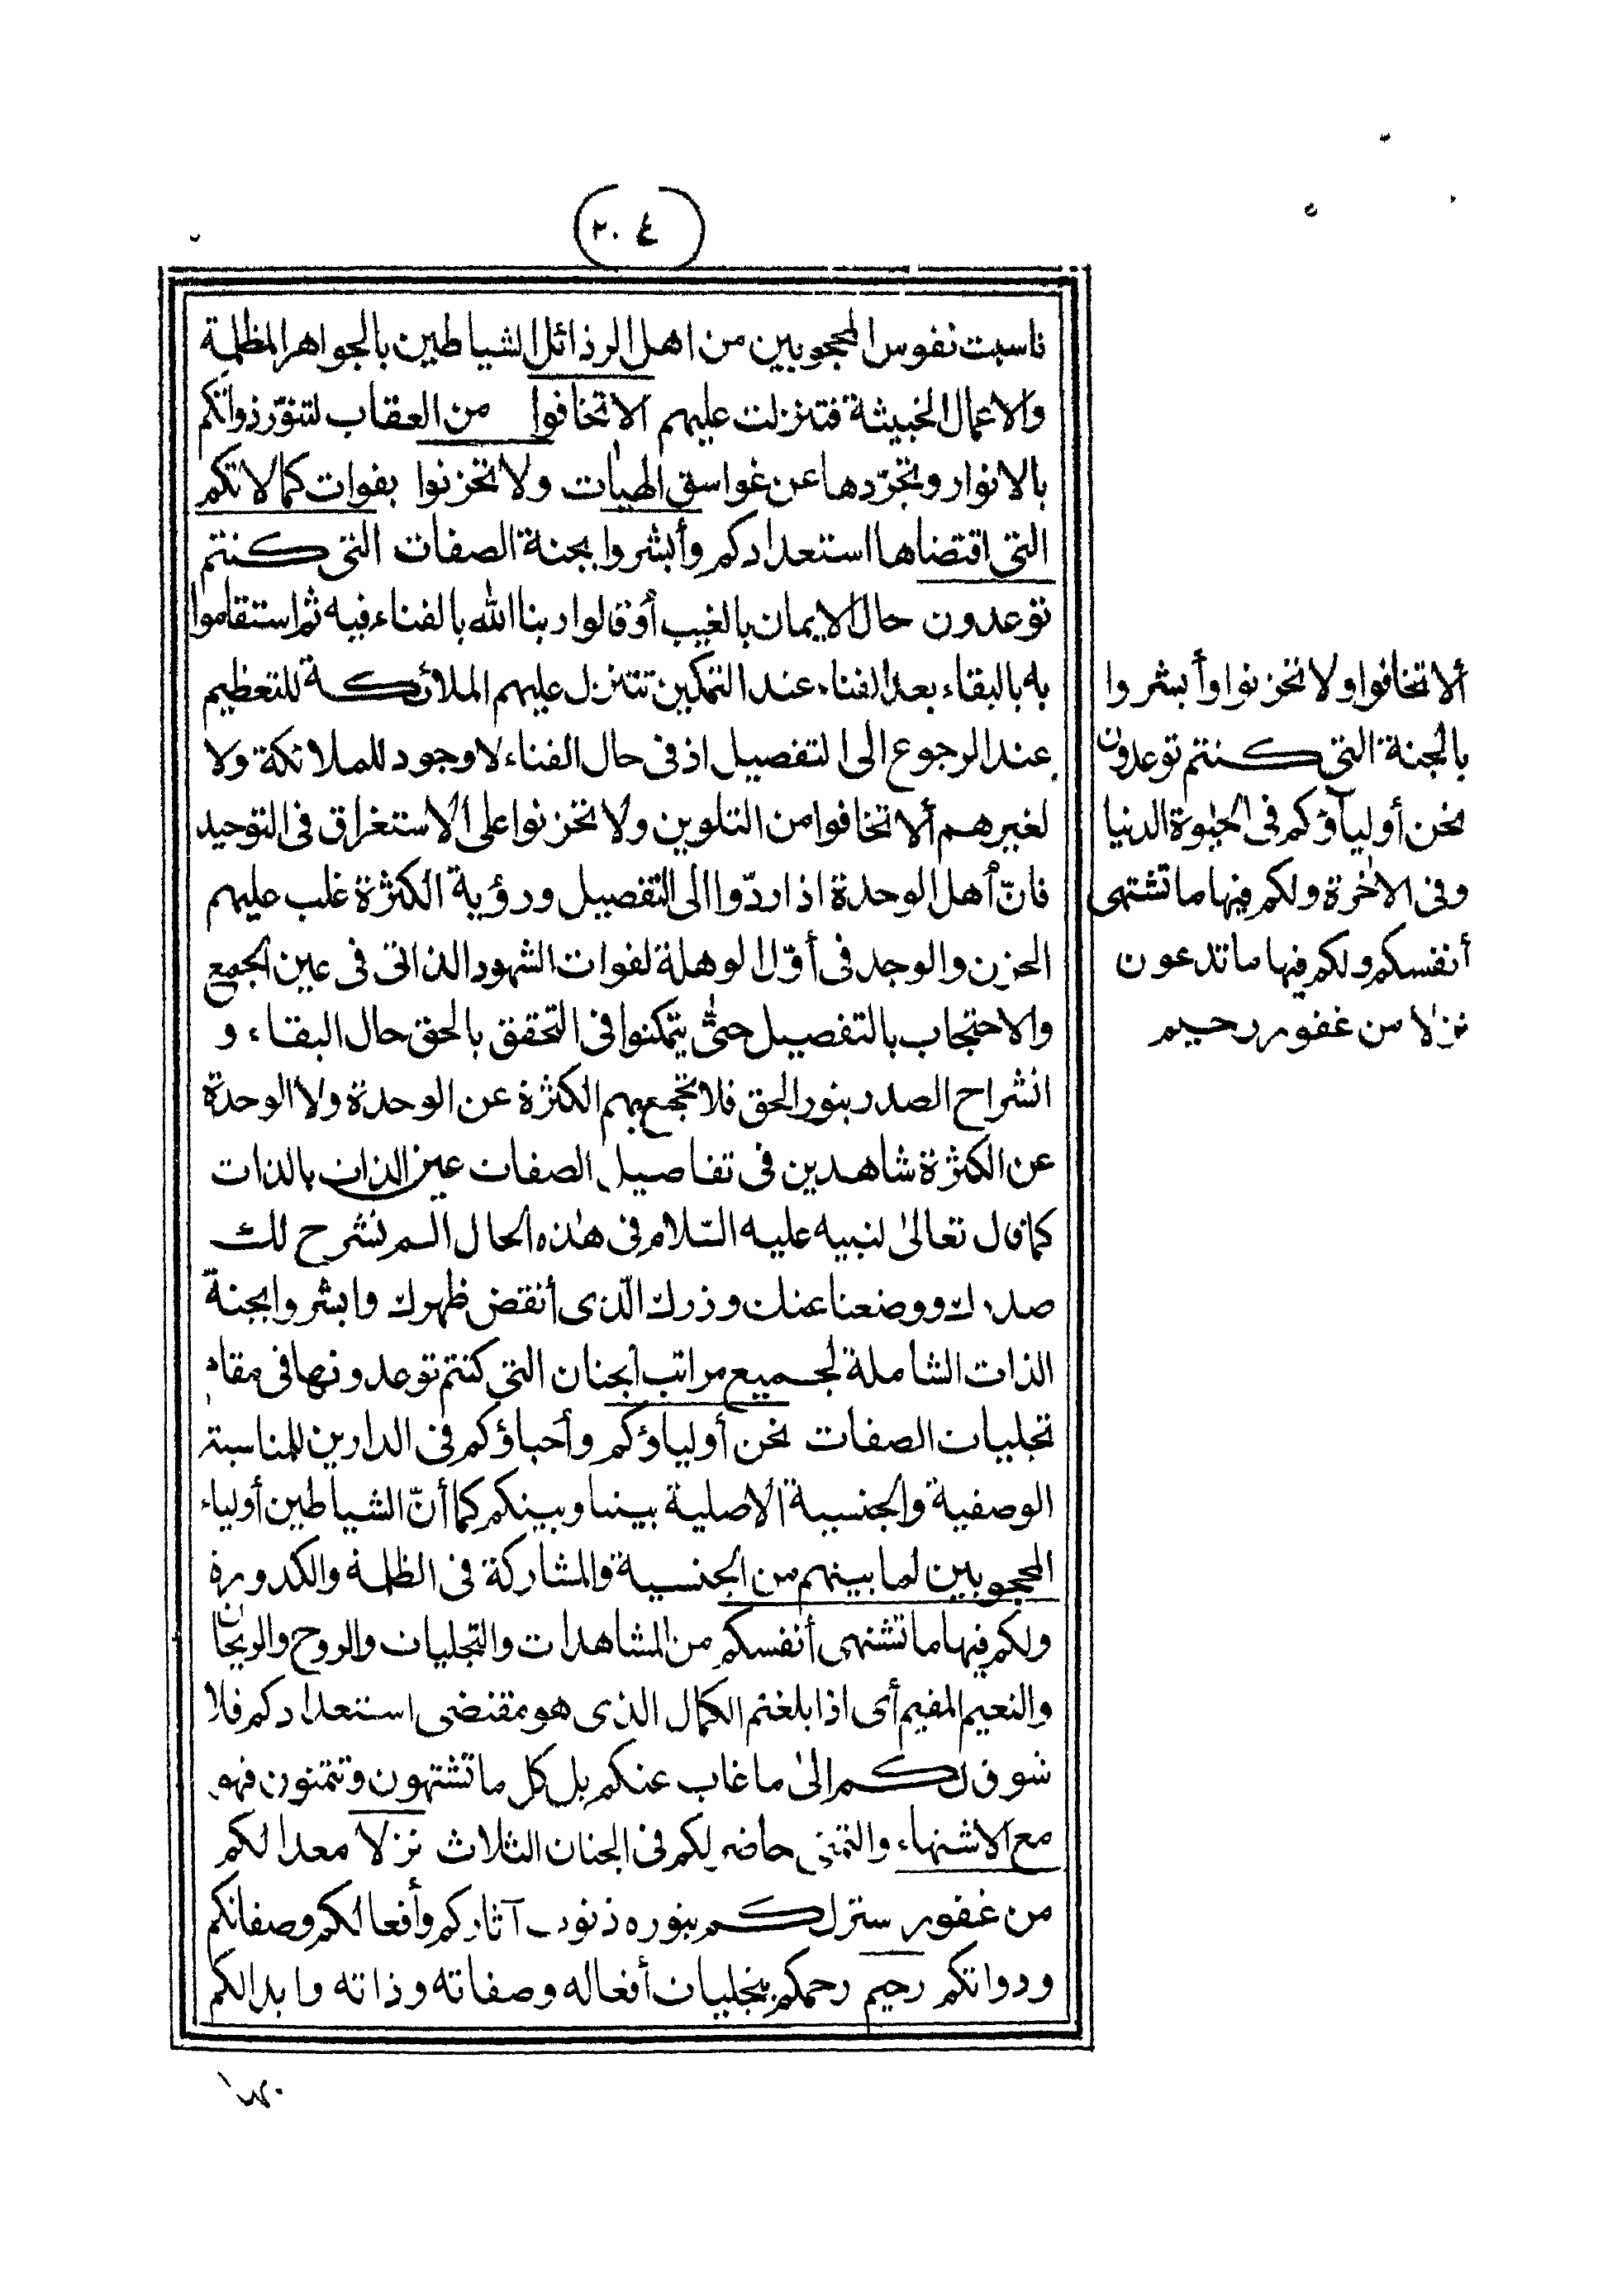 (٢٠٤)
ناسبت نفوس المحجوبين من اهل الرذائل الشياطين بالجواهر المظلمة
والاعمال الخبيثة فتنزلت عليهم الا تخافوا من العقاب لتنوّر ذواتكم
بالانوار وتجرّدها عن غواسق الهيأت ولا تحزنوا بفوات كمالاتكم
التى اقتضاها استعدادكم وأبشروا بجنة الصفات التى كنتم
توعدون حال الايمان بالغيب أو قالوا ربنا الله بالفناء فيه ثم استقاموا
به بالبقاء بعد الفناء عند التمكين تتنزل عليهم الملائكة للتعظيم
عند الرجوع الى التفصيل اذ فى حال الفناء لا وجود للملائكة ولا
لغيرهم ألا تخافوا من التلوين ولا تحزنوا على الاستغراق فى التوحيد
فانّ أهل الوحدة اذا ردّوا الى التفصيل ورؤية الكثرة غلب عليهم
الحزن والوجد فى أوّل الوهلة لفوات الشهود الذاتى فى عين الجمع
والاحتجاب بالتفصيل حتّى يتمكنوا فى التحقق بالحق حال البقاء و
انشراح الصدر بنور الحق فلا تحجبهم الكثرة عن الوحدة ولا الوحدة
عن الكثرة شاهدين فى تفاصيل الصفات عين الذات بالذات
كما قال تعالىٰ لنبيه عليه السّلام فى هٰذه الحال الم نشرح لك
صدرك ووضعنا عنك وزرك الّذى أنقض ظهرك وابشروا بجنة
الذات الشاملة لجميع مراتب الجنان التى كنتم توعدونها فى مقام
تجليات الصفات نحن أولياؤكم وأحباؤكم فى الدارين للمناسبة
الوصفية والجنسية الاصلية بيننا وبينكم كما أنّ الشياطين أولياء
المحجوبين لما بينهم من الجنسية والمشاركة فى الظلمة والكدورة
ولكم فيها ما تشتهى أنفسكم من المشاهدات والتجليات والروح والريحان
والنعيم المقيم أى اذا بلغتم الكمال الذى هو مقتضى استعدادكم فلا
شوق لكم الىٰ ما غاب عنكم بل كل ما تشتهون وتتمنون فهو
مع الاشتهاء والتمنى حاضر لكم فى الجنان الثلاث نزلا معدا لكم
من غفور ستر لكم بنوره ذنوب آثاركم وأفعالكم وصفاتكم
وذواتكم رحيم رحمكم بتجليات أفعاله وصفاته وذاته وابدالكم
ألا تخافوا ولا تحزنوا وأبشروا
بالجنة التى كنتم توعدون
نحن أوليآؤكم فى الحيٰوة الدنيا
وفى الاٰخرة ولكم فيها ما تشتهى
أنفسكم ولكم فيها ما تدعون
نزلا من غفور رحيم